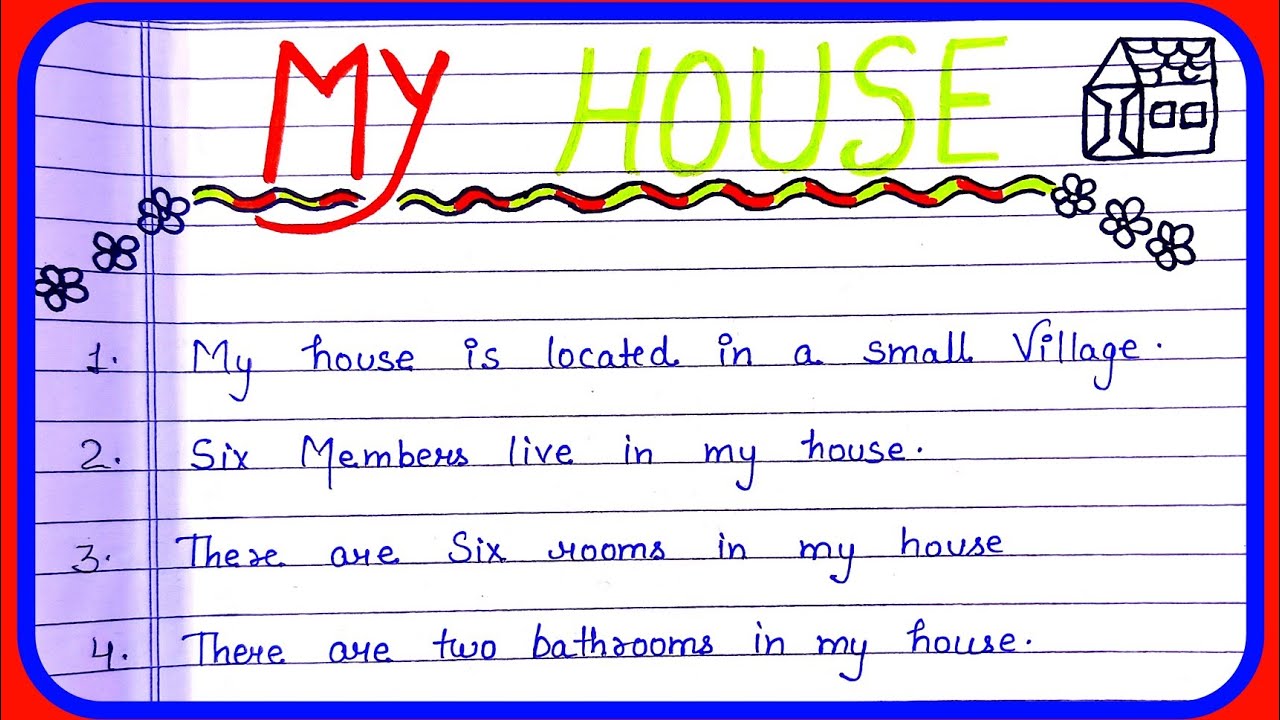 My HOUSE
1. My house is located in a small Village.
2. Six Members live in my house.
3. There are Six rooms in my house
4. There are two bathrooms in my house.